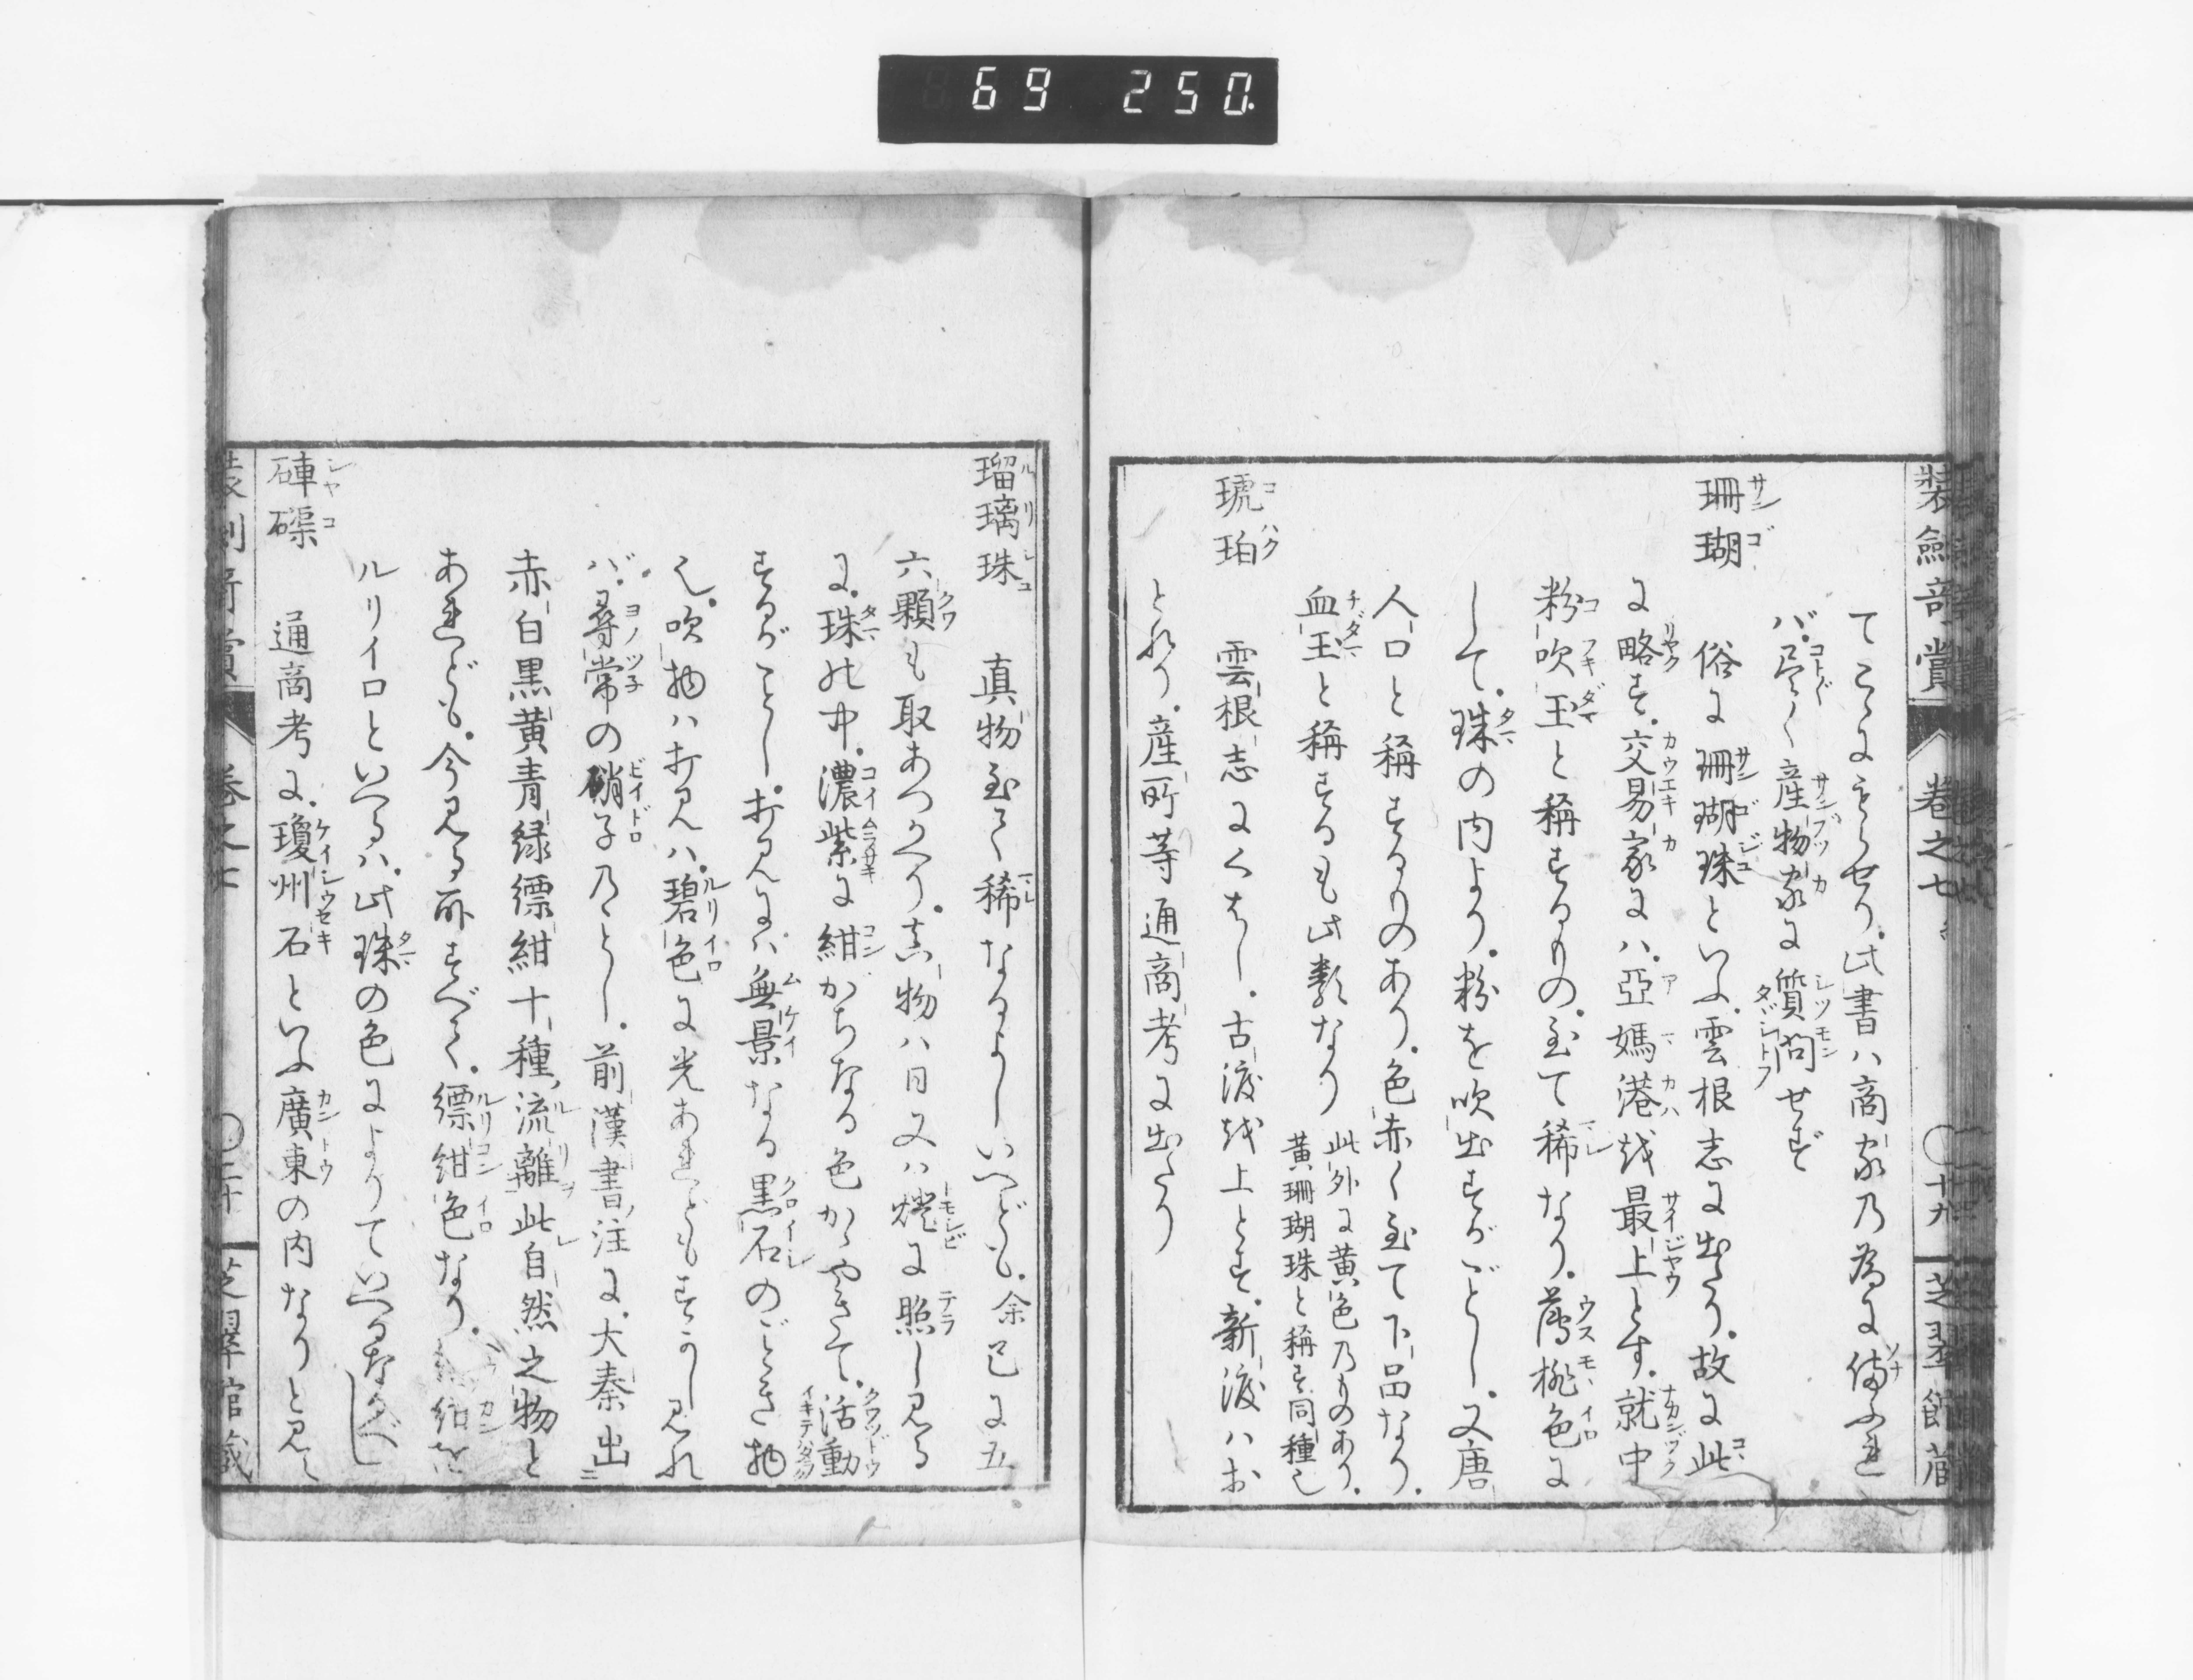 69 250.
装劍竒賞 巻之七 〇十九 芝翠館蔵
てこゝにもらせり。此書ハ商家乃為に備ふれ
バ。尽く産物家に質問せず
珊瑚 俗に珊瑚珠といふ。雲根志に出たり。故に此
に略す。交易家にハ。亞媽港を最上とす。就中
粉吹玉と稱するもの。至て稀なり。薄桃色に
して。珠の内より。粉を吹出すがごとし。又唐
人口と稱するものあり。色赤く至て下品なり。
血玉と稱するも此類なり 此外に黄色乃ものあり。
黄珊瑚珠と稱す同種也
琥珀 雲根志にくはし。古渡を上とす。新渡ハお
とれり。産所等通商考に出たり
瑠璃珠 真物至て稀なるよしいへども。余已に五
六顆も取あつかへり。真物ハ日又ハ燈に照し見る
に。珠の中。濃紫に紺がちなる色かゝやきて。活動
するがことし。打見にハ無景なる黒石のごとき物
也。吹物ハ打見ハ。碧色に光あれどもすかし見れ
バ。尋常の硝子乃ことし。前漢書ノ注に。大秦出
赤白黒黄青緑縹紺十種ノ流離此自然之物と
あれども。今見る所すべて。縹紺色なり。紺を
ルリイロといへるハ。此珠の色によりていへるなるべし
硨磲 通商考に。瓊州石といふ廣東の内なりと見え
装劍竒賞 巻之七 〇二十 芝翠館蔵